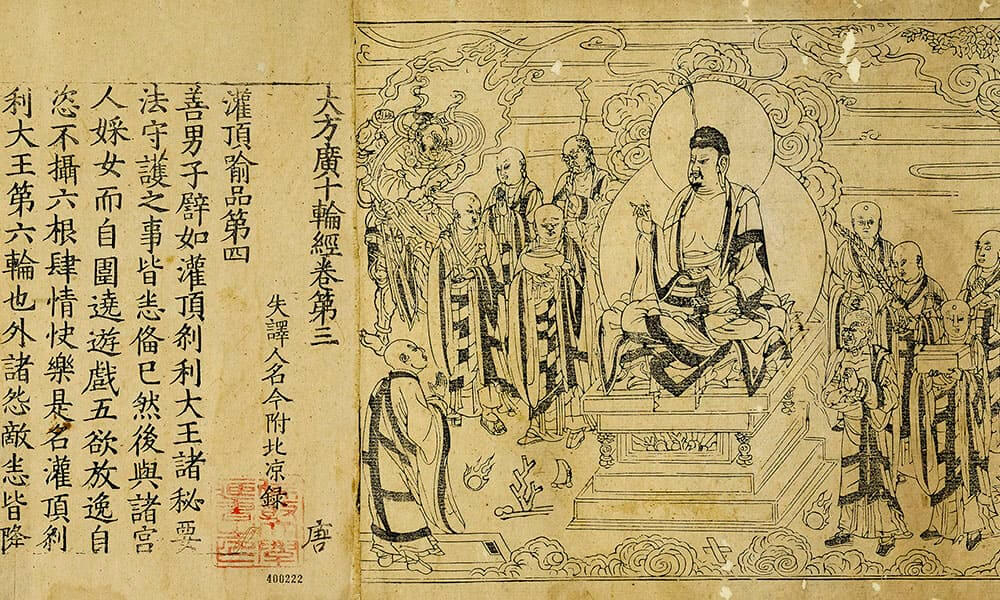 大方廣十輪經卷第三 唐
失譯人名今附北凉録
灌頂喻品第四
善男子譬如灌頂剎利大王諸秘要
法守護之事皆悉俻已然後與諸宮
人婇女而自圍遶遊戲五欲放逸自
恣不攝六根肆情快樂是名灌頂剎
利大王第六輪也外諸怨敵悉皆降
400222